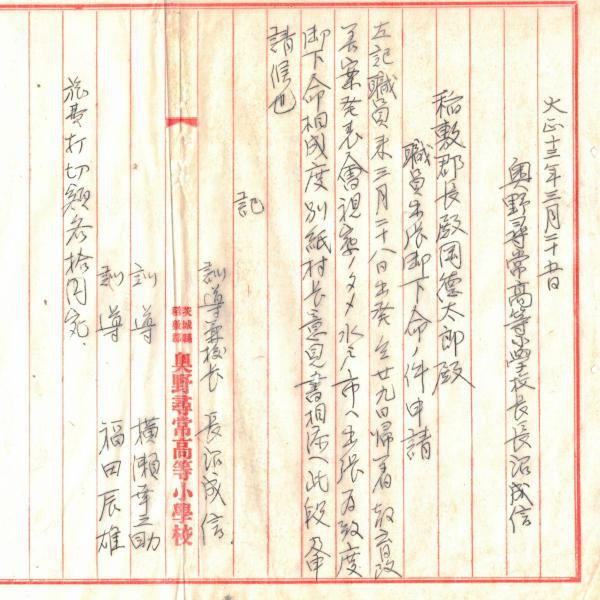 大正十三年三月二十五日
奥野尋常高等小学校長長沼成信
稲敷郡長殿岡德太郎殿
職員出張御下命ノ件申請
左記職員来三月二十八日出発仝廿九日帰着教育改
善案発表會視察ノタメ水戸市ヘ出張為致度
御下命相成度別紙村長意見書相添ヘ此段及申
請候也
記
訓導兼校長 長沼成信
茨城縣稲敷郡 奥野尋常高等小學校
訓導 横瀬幸三助
訓導 福田辰雄
旅費打切額各拾円宛